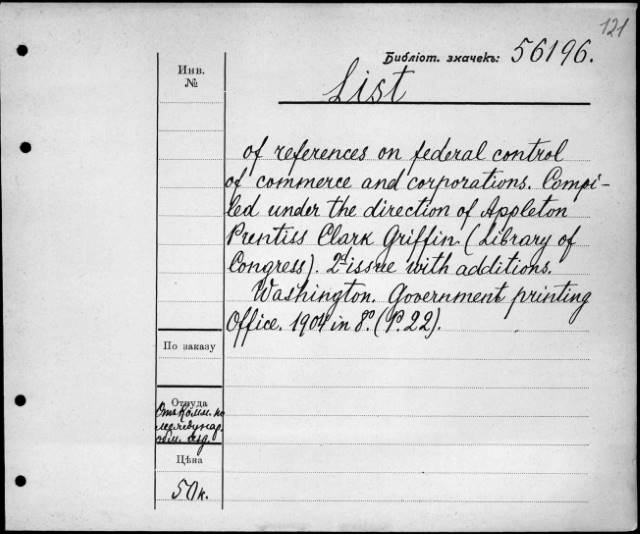 121
Библіот. значекъ: 56196.
Инв.
№
List
of references on federal control
of commerce and corporations. Compi-
led under the direction of Appleton
Prentiss Clark Griffin (Library of
Congress). 2d issue with additions.
Washington. Government printing
Office. 1904 in 8º. (P. 22).
По заказу
Откуда
Отъ Комм. по
междунар.
обм. изд.
Цѣна
50 к.